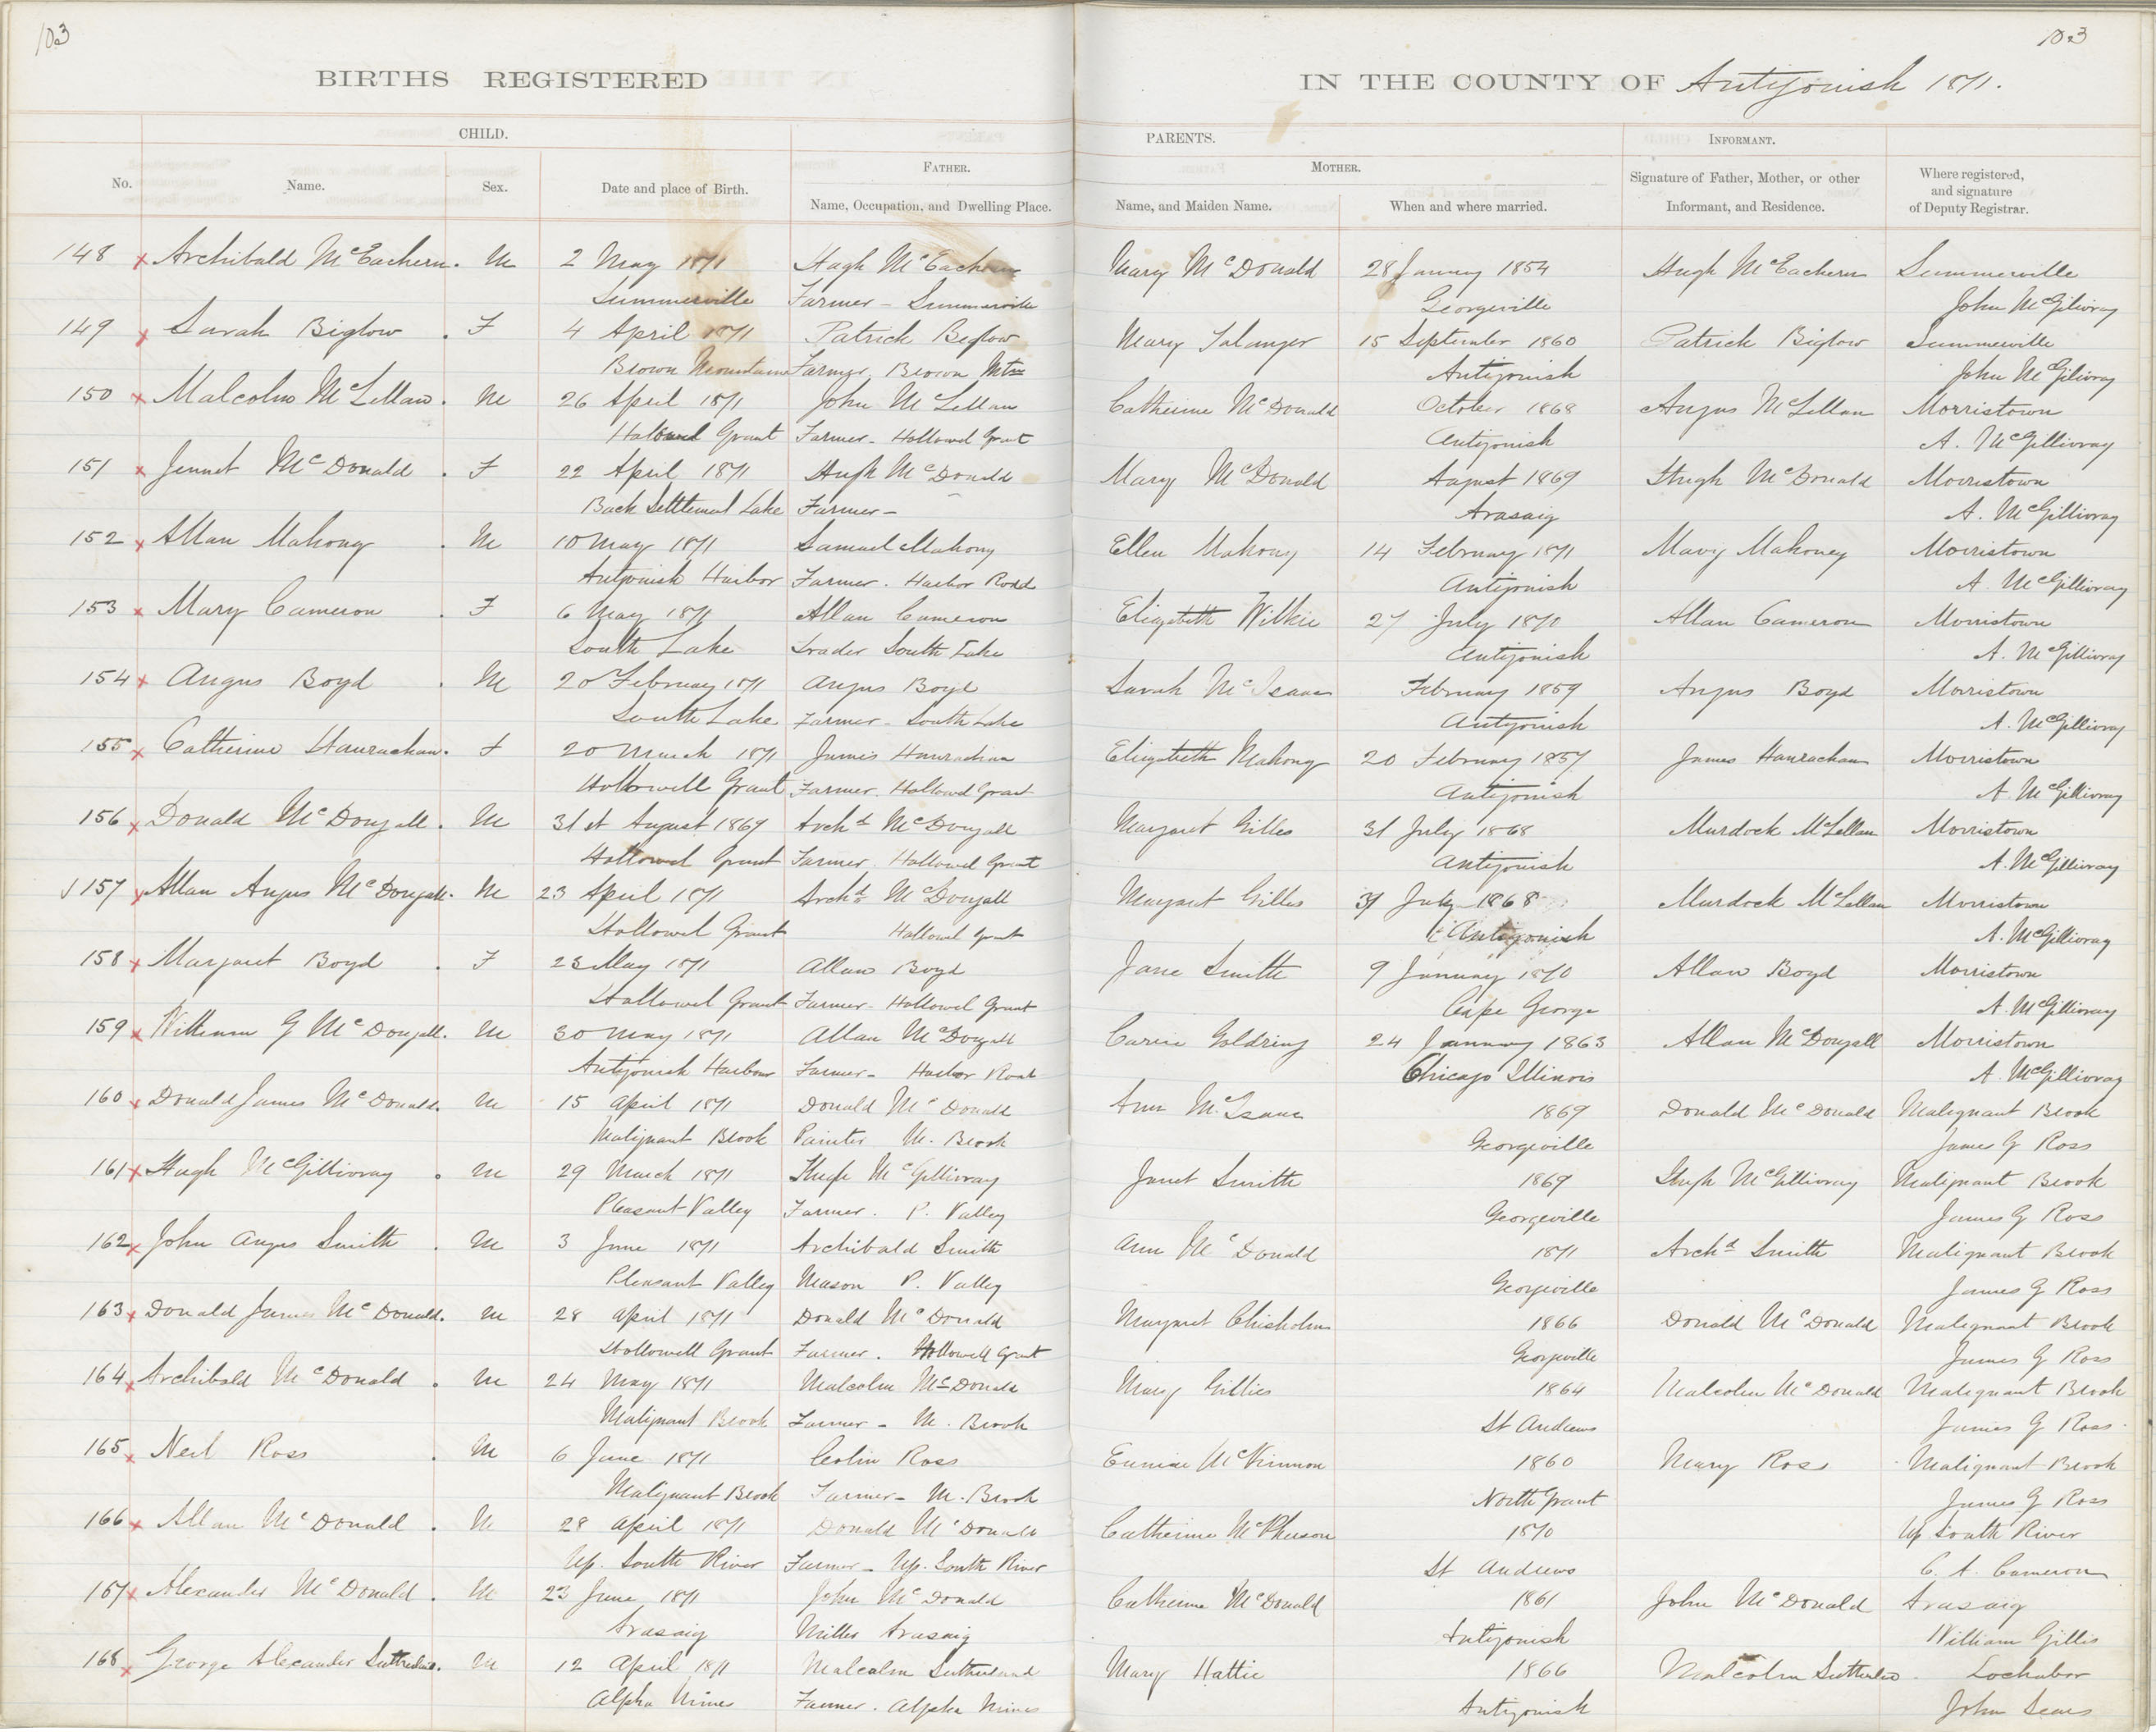 103
103
BIRTHS REGISTERED IN THE COUNTY OF Antigonish 1871.
CHILD. PARENTS. INFORMANT.
FATHER. MOTHER.
No. Name. Sex. Date and place of Birth. Name, Occupation, and Dwelling Place. Name, and Maiden Name. When and where married. Signature of Father, Mother, or other Informant, and Residence. Where registered, and signature of Deputy Registrar.
148 x Archibald McEachern. M 2 May 1871 Hugh McEachern Mary McDonald 28 January 1854 Hugh McEachern Summerville
Summerville Farmer - Summerville Georgeville John McGilivray
149 x Sarah Biglow . F 4 April 1871 Patrick Biglow Mary 15 September 1860 Patrick Biglow Summerville
Brown Mountains Farmer Brown Mtns Antigonish John McGilivray
150 x Malcolm McLellan . M 26 April 1871 John McLellan Catherine McDonald October 1868 Angus McLellan Morristown
Hallowel Grant Farmer - Hallowel Grant Antigonish A. McGillivray
151 x Jennet McDonald . F 22 April 1871 Hugh McDonald Mary McDonald August 1869 Hugh McDonald Morristown
Back Settlement Lake Farmer - Arasaig A. McGillivray
152 x Allan Mahony . M 10 May 1871 Samuel Mahony Ellen Mahony 14 February 1871 Mary Mahoney Morristown
Antigonish Harbor Farmer . Harbor Road Antigonish A. McGillivray
153 x Mary Cameron . F 6 May 1871 Allan Cameron Elizabeth Wilkie 27 July 1870 Allan Cameron Morristown
South Lake Trader South Lake Antigonish A. McGillivray
154 x Angus Boyd . M 20 February 1871 Angus Boyd Sarah McIsaac February 1859 Angus Boyd Morristown
South Lake Farmer - South Lake Antigonish A. McGillivray
155 x Catherine Hanrachan . F 20 March 1871 James Hanrachan Elizabeth Mahony 20 February 1857 James Hanrachan Morristown
Hollowell Grant Farmer. Hallowel Grant Antigonish A. McGillivray
156 x Donald McDougall . M 31st August 1869 Archd McDougall Margaret Gilles 31 July 1868 Murdock McLellan Morristown
Hallowel Grant Farmer. Hallowel Grant Antigonish A. McGillivray
157 x Allan Angus McDougall. M 23 April 1871 Archd McDougall Margaret Gilles 31 July 1868 Murdock McLellan Morristown
Hollowel Grant Hallowel Grant Antigonish A. McGillivray
158 x Margaret Boyd . F 23 May 1871 Allan Boyd Jane Smith 9 January 1870 Allan Boyd Morristown
Hallowel Grant Farmer - Hallowel Grant Cape George A. McGillivray
159 x William G McDougall. M 30 May 1871 Allan McDougall Carrie Goldring 24 January 1863 Allan McDougall Morristown
Antigonish Harbour Farmer - Harbor Road Chicago Illinois A. McGillivray
160 x Donald James McDonald. M 15 April 1871 Donald McDonald Ann McIsaac 1869 Donald McDonald Malignant Brook
Malignant Brook Painter M. Brook Georgeville James G Ross
161 x Hugh McGillivray . M 29 March 1871 Hugh McGillivray Janet Smith 1869 Hugh McGillivray Malignant Brook
Pleasant Valley Farmer. P. Valley Georgeville James G Ross
162 x John Angus Smith . M 3 June 1871 Archibald Smith Ann McDonald 1871 Archd Smith Malignant Brook
Pleasant Valley Mason P. Valley Georgeville James G Ross
163 x Donald James McDonald. M 28 April 1871 Donald McDonald Margaret Chisholm 1866 Donald McDonald Malignant Brook
Hollowell Grant Farmer. Hollowell Grant Georgeville James G Ross
164 x Archibald McDonald . M 24 May 1871 Malcolm McDonald Mary Gillies 1864 Malcolm McDonald Malignant Brook
Malignant Brook Farmer - M. Brook St Andrews James G Ross
165 x Neil Ross . M 6 June 1871 Colin Ross Eunice McKinnon 1860 Mary Ross Malignant Brook
Malignant Brook Farmer - M. Brook North Grant James G Ross
166 x Allan McDonald . M 28 April 1871 Donald McDonald Catherine McPherson 1870 Up. South River
Up. South River Farmer - Up. South River St Andrews C. A. Cameron
167 x Alexander McDonald . M 23 June 1871 John McDonald Catherine McDonald 1861 John McDonald Arasaig
Arasaig Miller Arasaig Antigonish William Gillis
168 x George Alexander Sutherland. M 12 April 1871 Malcolm Sutherland Mary Hattie 1866 Malcolm Sutherland Lochaber
Alpha Mines Farmer. Alpha Mines Antigonish John Sears